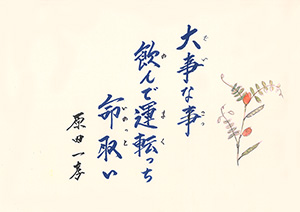 大事な事
飲んで運転っち
命取い
原田一孝